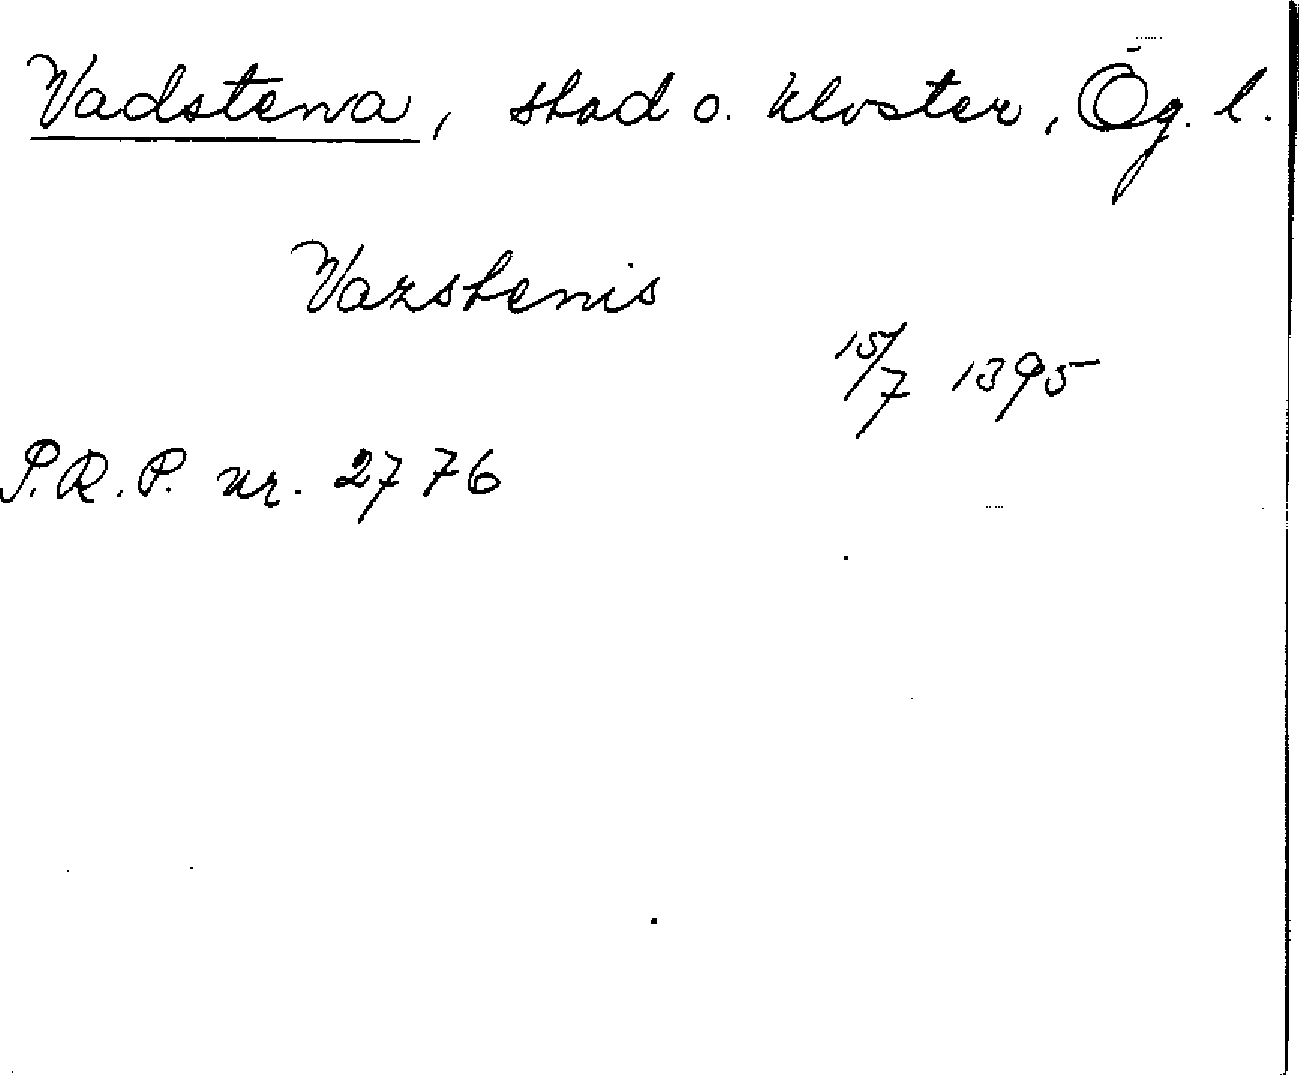 Vadstena, stad o. kloster, Ög. l.
Vazstenis
15/7 1395
S.R.P. nr. 2776